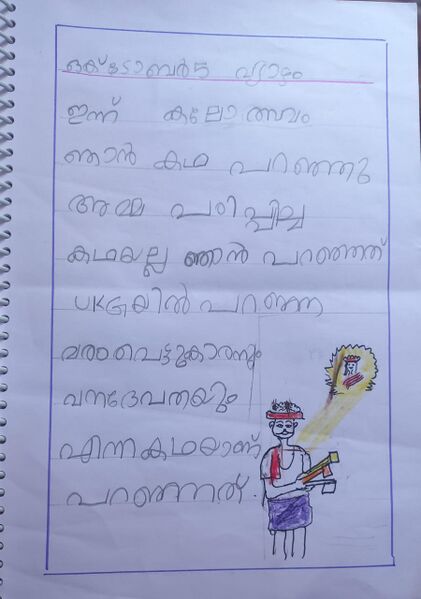 ഒക്ടോബർ 5 വ്യാഴം
ഇന്ന് കലോത്സവം
ഞാൻ കഥ പറഞ്ഞു
അമ്മ പഠിപ്പിച്ച
കഥയല്ല ഞാൻ പറഞ്ഞത്
UKGയിൽ പറഞ്ഞ
മരംവെട്ടുകാരനും
വനദേവതയും
എന്ന കഥയാണ്
പറഞ്ഞത്